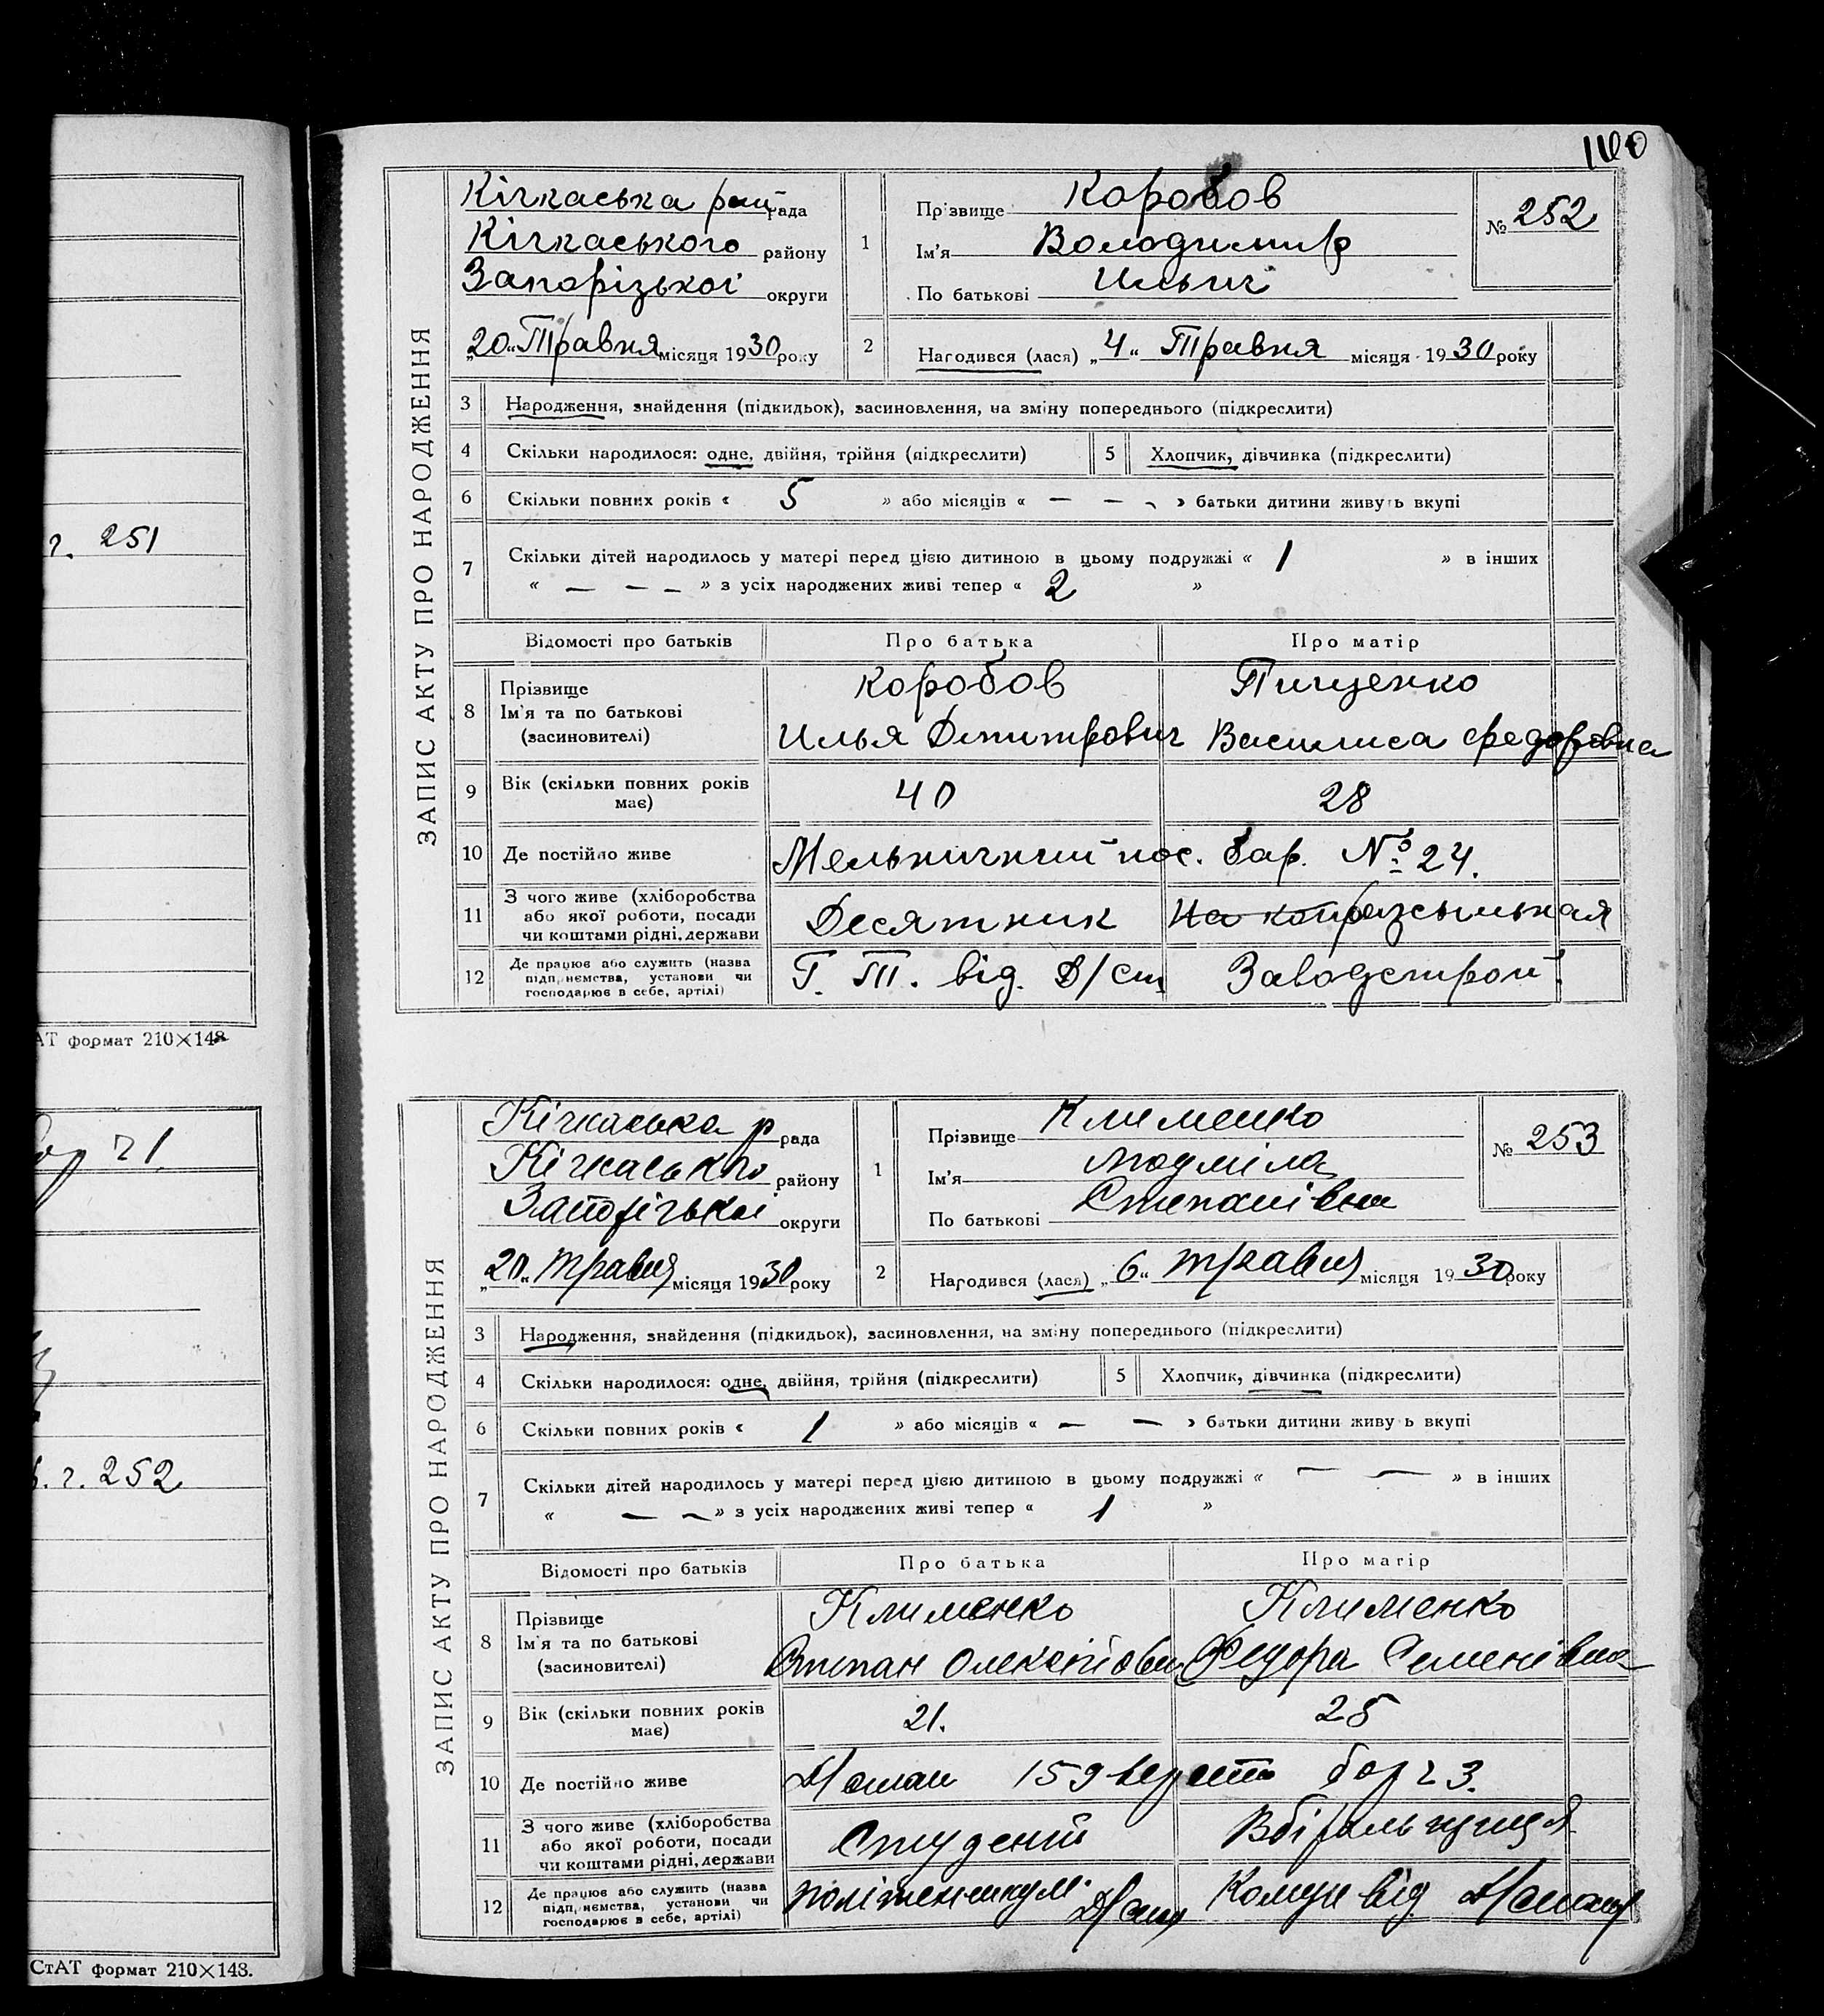 г. 251
АТ формат 210×148
бор ч 1.
ч. 252
СтАТ формат 210×148.
160
ЗАПИС АКТУ ПРО НАРОДЖЕННЯ
Кічкаська рай рада
Кічкаського району
Запорізької округи
„20“ Травня місяця 1930 року
1
Прізвище Коробов
Ім'я Володимир
По батькові Ильич
№ 252
2
Народився (лася) „4“ Травня місяця 1930 року
3 Народження, знайдення (підкидьок), засиновлення, на зміну попереднього (підкреслити)
4 Скільки народилося: одне, двійня, трійня (підкреслити)
5 Хлопчик, дівчинка (підкреслити)
6 Скільки повних років « 5 » або місяців « — — – » батьки дитини живуть вкупі
7 Скільки дітей народилось у матері перед цією дитиною в цьому подружжі « 1 » в інших
« — — – » з усіх народжених живі тепер « 2 »
Відомості про батьків Про батька Про матір
8 Прізвище Коробов Пищенко
Ім'я та по батькові
(засиновителі) Илья Дмитрович Василиса Федоровна
9 Вік (скільки повних років має) 40 28
10 Де постійно живе Мельничний пос. бар. № 24.
11 З чого живе (хліборобства
або якої роботи, посади
чи коштами рідні, держави Десятник разсыльная
12 Де працює або служить (назва
підприємства, установи чи
господарює в себе, артілі) Г. Т. від. Д/ст Заводстрой.
ЗАПИС АКТУ ПРО НАРОДЖЕННЯ
Кічкаська р рада
Кічкаського району
Запорізької округи
„20“ травня місяця 1930 року
1
Прізвище Клименко
Ім'я Людміла
По батькові Степанівна
№ 253
2
Народився (лася) „6“ травня місяця 1930 року
3 Народження, знайдення (підкидьок), засиновлення, на зміну попереднього (підкреслити)
4 Скільки народилося: одне, двійня, трійня (підкреслити)
5 Хлопчик, дівчинка (підкреслити)
6 Скільки повних років « 1 » або місяців « — — » батьки дитини живуть вкупі
7 Скільки дітей народилось у матері перед цією дитиною в цьому подружжі « — — » в інших
« — — » з усіх народжених живі тепер « 1 »
Відомості про батьків Про батька Про матір
8 Прізвище Клименко Клименко
Ім'я та по батькові
(засиновителі) Степан Олексійови Федора Семенівна
9 Вік (скільки повних років має) 21. 25
10 Де постійно живе 159 верста бор ч 3.
11 З чого живе (хліборобства
або якої роботи, посади
чи коштами рідні, держави Студент Вбіральщиця
12 Де працює або служить (назва
підприємства, установи чи
господарює в себе, артілі) політехникум Комун від